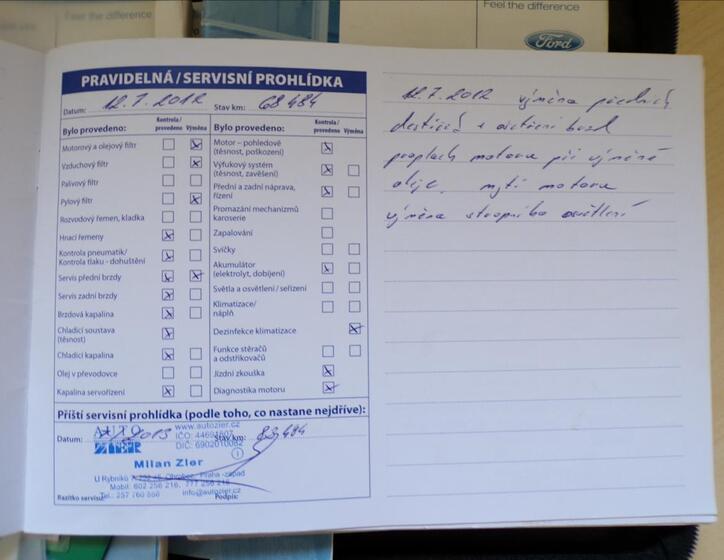 Feel the difference
Feel the difference
Ford
PRAVIDELNÁ/SERVISNÍ PROHLÍDKA
Datum: 12.7.2012 Stav km: 68 484
Bylo provedeno: Kontrola/provedeno Výměna
Motorový a olejový filtr
Vzduchový filtr
Palivový filtr
Pylový filtr
Rozvodový řemen, kladka
Hnací řemeny
Kontrola pneumatik/
Kontrola tlaku - dohuštění
Servis přední brzdy
Servis zadní brzdy
Brzdová kapalina
Chladicí soustava
(těsnost)
Chladicí kapalina
Olej v převodovce
Kapalina servořízení
Bylo provedeno: Kontrola/provedeno Výměna
Motor – pohledově
(těsnost, poškození)
Výfukový systém
(těsnost, zavěšení)
Přední a zadní náprava,
řízení
Promazání mechanizmů
karoserie
Zapalování
Svíčky
Akumulátor
(elektrolyt, dobíjení)
Světla a osvětlení / seřízení
Klimatizace/
náplň
Dezinfekce klimatizace
Funkce stěračů
a odstřikovačů
Jízdní zkouška
Diagnostika motoru
Příští servisní prohlídka (podle toho, co nastane nejdříve):
Datum: 2013 Stav km: 83 484
AUTO
ZIER
www.autozier.cz
IČO:
DIČ:
Milan Zier
U Rybníků Praha -západ
Mobil: 602 256 216,
Tel.: 257 760 info@autozier.cz
Razítko servisu: Podpis:
12.7.2012 výměna předních
destiček + ošetření brzd
proplach motoru při výměně
oleje, mytí motoru
výměna stropního osvětlení